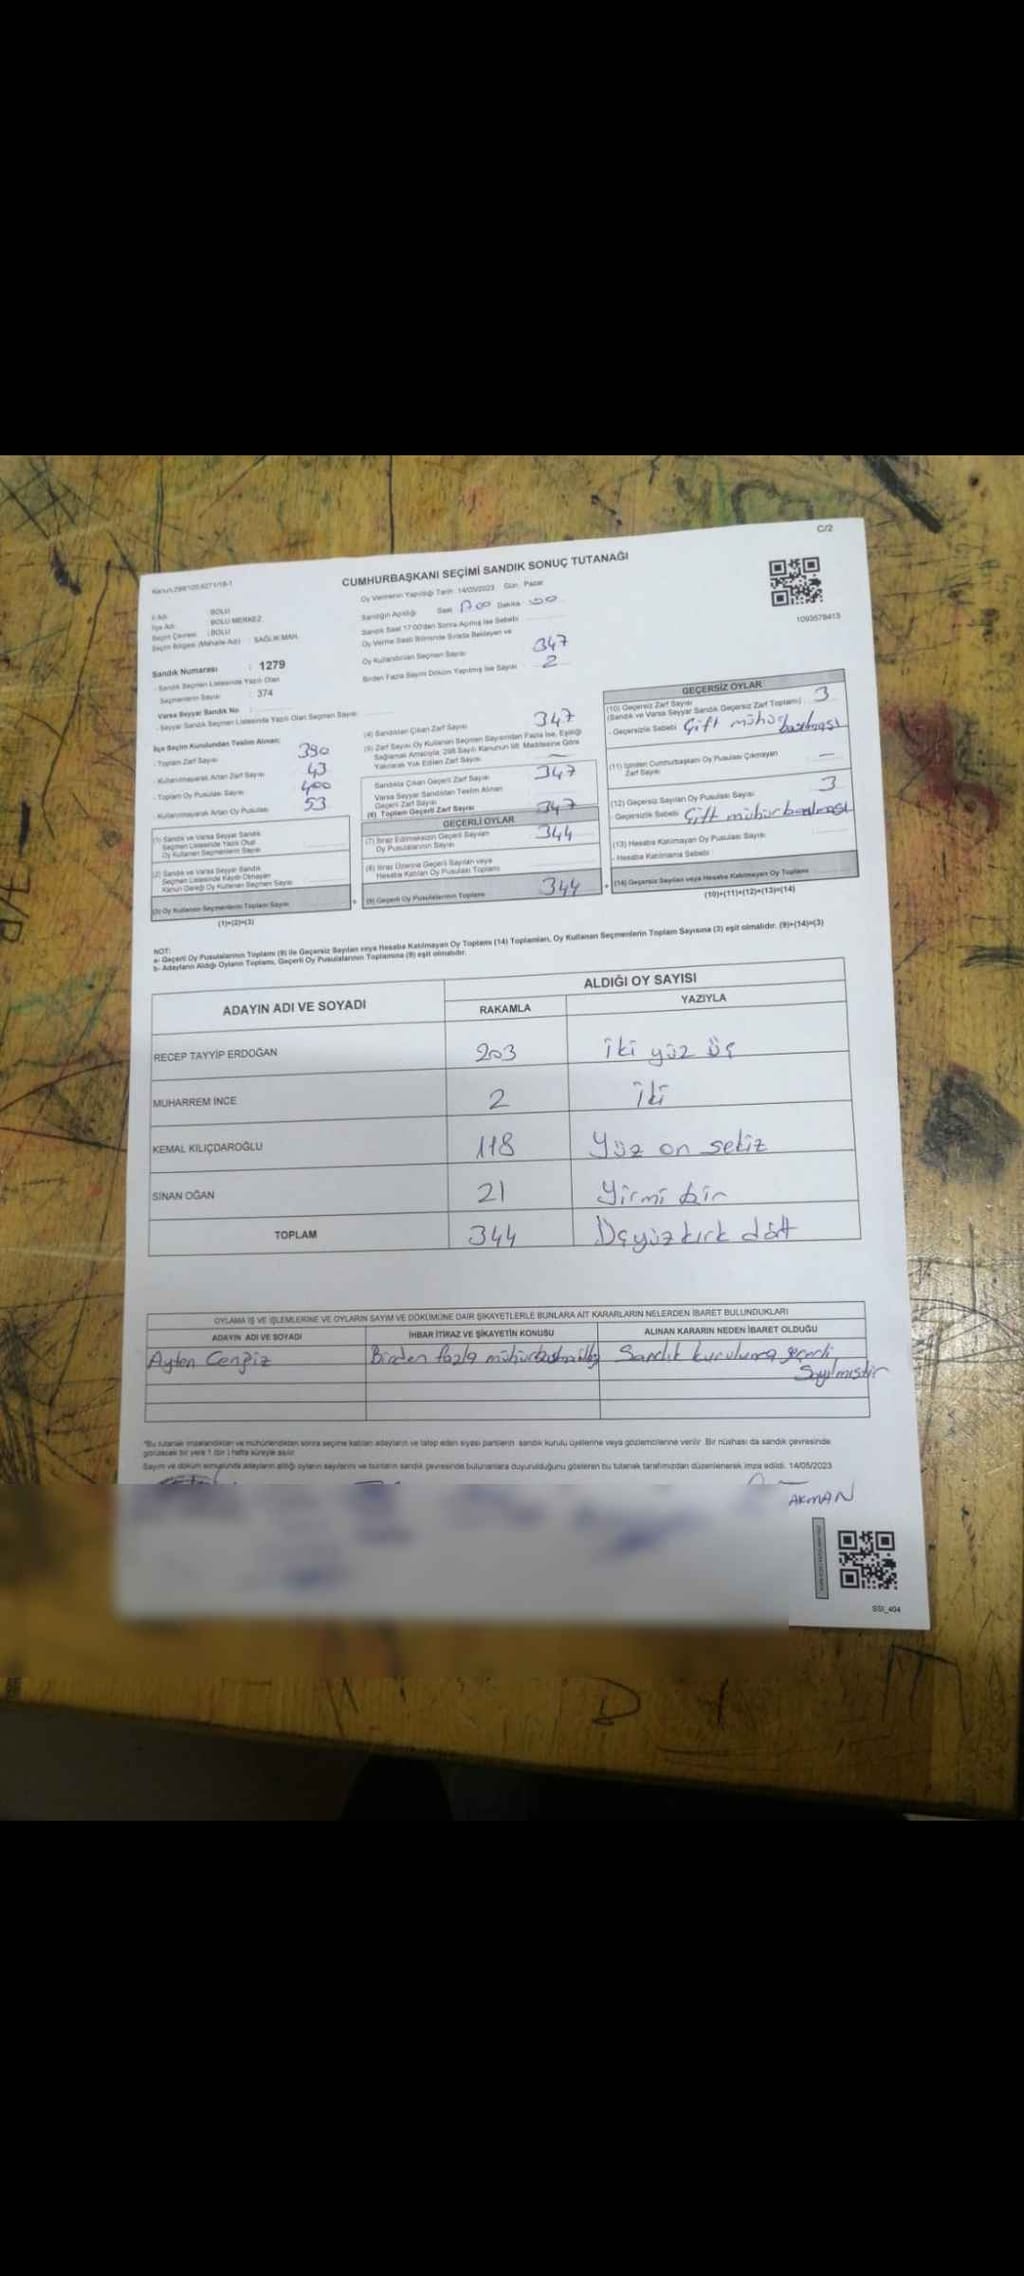 C/2
CUMHURBAŞKANI SEÇİMİ SANDIK SONUÇ TUTANAĞI
Oy Vermenin Yapıldığı Tarih: 14/05/2023 Gün: Pazar
1093578413
İl Adı : BOLU
İlçe Adı : BOLU MERKEZ
Seçim Çevresi : BOLU
Seçim Bölgesi (Mahalle Adı) : SAĞLIK MAH.
Sandığın Açıldığı Saat Dakika
Sandık Saat 17:00'dan Sonra Açılmış İse Sebebi
Oy Verme Saati Bitiminde Sırada Bekleyen ve
Oy Kullandırılan Seçmen Sayısı 347
Birden Fazla Sayım Döküm Yapılmış İse Sayısı 2
Sandık Numarası : 1279
- Sandık Seçmen Listesinde Yazılı Olan
Seçmenlerin Sayısı : 374
Varsa Seyyar Sandık No :
- Seyyar Sandık Seçmen Listesinde Yazılı Olan Seçmen Sayısı
İlçe Seçim Kurulundan Teslim Alınan;
- Toplam Zarf Sayısı 390
- Kullanılmayarak Artan Zarf Sayısı 43
- Toplam Oy Pusulası Sayısı 400
- Kullanılmayarak Artan Oy Pusulası 53
(1) Sandık ve Varsa Seyyar Sandık
Seçmen Listesinde Yazılı Olup
Oy Kullanan Seçmenlerin Sayısı
(2) Sandık ve Varsa Seyyar Sandık
Seçmen Listesinde Kaydı Olmayan
Kanun Gereği Oy Kullanan Seçmen Sayısı
(3) Oy Kullanan Seçmenlerin Toplam Sayısı
(1)+(2)=(3)
(4) Sandıktan Çıkan Zarf Sayısı 347
(5) Zarf Sayısı Oy Kullanan Seçmen Sayısından Fazla İse, Eşitliği
Sağlamak Amacıyla, 298 Sayılı Kanunun 98. Maddesine Göre
Yakılarak Yok Edilen Zarf Sayısı —
Sandıkta Çıkan Geçerli Zarf Sayısı 347
Varsa Seyyar Sandıktan Teslim Alınan
Geçerli Zarf Sayısı
(6) Toplam Geçerli Zarf Sayısı 347
GEÇERLİ OYLAR
(7) İtiraz Edilmeksizin Geçerli Sayılan
Oy Pusulalarının Sayısı 344
(8) İtiraz Üzerine Geçerli Sayılan veya
Hesaba Katılan Oy Pusulası Toplamı
(9) Geçerli Oy Pusulalarının Toplamı 344
GEÇERSİZ OYLAR
(10) Geçersiz Zarf Sayısı
(Sandık ve Varsa Seyyar Sandık Geçersiz Zarf Toplamı) 3
- Geçersizlik Sebebi Çift mühür basılması
(11) İçinden Cumhurbaşkanı Oy Pusulası Çıkmayan
Zarf Sayısı —
(12) Geçersiz Sayılan Oy Pusulası Sayısı 3
Geçersizlik Sebebi Çift mühür basılması
(13) Hesaba Katılmayan Oy Pusulası Sayısı
- Hesaba Katılmama Sebebi
(14) Geçersiz Sayılan veya Hesaba Katılmayan Oy Toplamı
(10)+(11)+(12)+(13)=(14)
NOT:
a- Geçerli Oy Pusulalarının Toplamı (9) ile Geçersiz Sayılan veya Hesaba Katılmayan Oy Toplamı (14) Toplamları, Oy Kullanan Seçmenlerin Toplam Sayısına (3) eşit olmalıdır. (9)+(14)=(3)
b- Adayların Aldığı Oyların Toplamı, Geçerli Oy Pusulalarının Toplamına (9) eşit olmalıdır.
ADAYIN ADI VE SOYADI
ALDIĞI OY SAYISI
RAKAMLA YAZIYLA
RECEP TAYYİP ERDOĞAN 203 İki yüz üç
MUHARREM İNCE 2 İki
KEMAL KILIÇDAROĞLU 118 Yüz on sekiz
SİNAN OĞAN 21 Yirmi bir
TOPLAM 344 Üçyüz kırk dört
OYLAMA İŞ VE İŞLEMLERİNE VE OYLARIN SAYIM VE DÖKÜMÜNE DAİR ŞİKAYETLERLE BUNLARA AİT KARARLARIN NELERDEN İBARET BULUNDUKLARI
ADAYIN ADI VE SOYADI İHBAR İTİRAZ VE ŞİKAYETİN KONUSU ALINAN KARARIN NEDEN İBARET OLDUĞU
Ayten Cengiz Birden fazla Sandık kurulunca geçerli
Sayılmıştır
*Bu tutanak imzalandıktan ve mühürlendikten sonra seçime katılan adayların ve talep eden siyasi partilerin sandık kurulu üyelerine veya gözlemcilerine verilir. Bir nüshası da sandık çevresinde
görülecek bir yere 1 (bir ) hafta süreyle asılır.
Sayım ve döküm sonucunda adayların aldığı oyların sayılarını ve bunların sandık çevresinde bulunanlara duyurulduğunu gösteren bu tutanak tarafımızdan düzenlenerek imza edildi. 14/05/2023
AKMAN
SSI_404